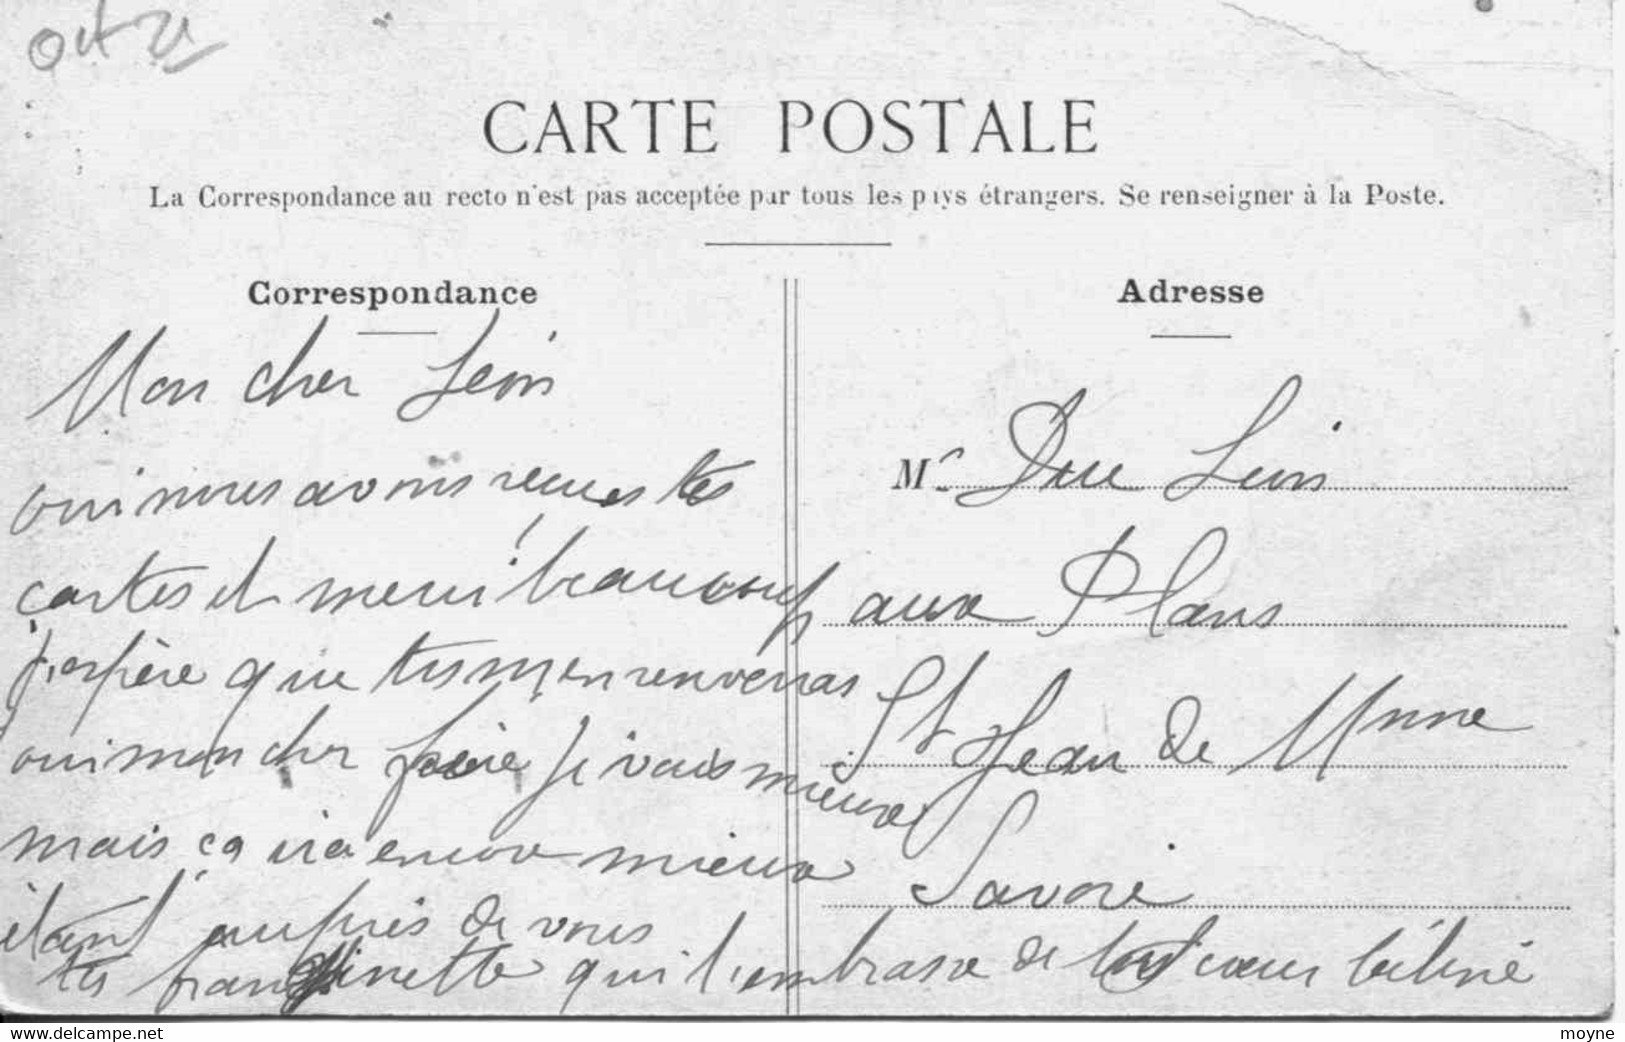 CARTE POSTALE
La Correspondance au recto n'est pas acceptée par tous les pays étrangers. Se renseigner à la Poste.
Correspondance
Mon cher Léon
oui nous avons recues tes
cartes et merci beaucoup
j'espère que tu m'en renverras
oui mon cher frère je vais mieux
mais ça ira encore mieux
étant auprès de vous
ta qui t'embrasse de tout coeur
Adresse
Mr Léon
aux Plans
St Jean de
Savoie
www.delcampe.net
moyne